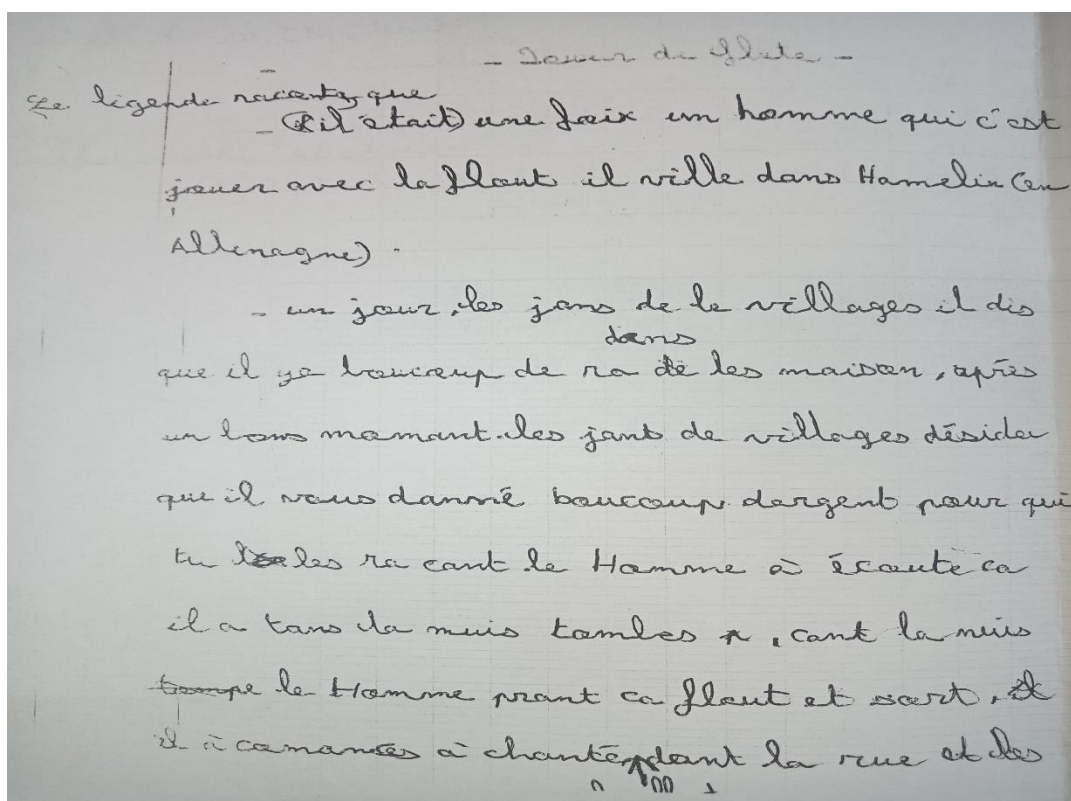 - Joueur de flute -
Le légende raconte, que
- (il était) une foix um homme qui c'est
jouer avec la flout il ville dans Hamelin (en
Allenagne).
- un jour, les jans de le villages il dis
dans
que il ya boucoup de ra de les maison, après
un bons momant. les jant de villages désider
que il vous danné boucoup dargent pour qui
tu les ra cant le Homme à écouté ca
il a tans la nuis tombes, cant la nuis
tompe le Homme prant ca flout et sort, et
il à comances à chanté dant la rue et les